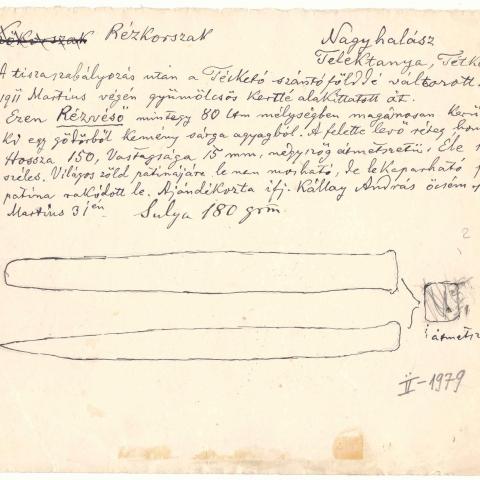 Rézkorszak Nagyhalász
Telektanya, Téckó
A tiszaszabályozás után a Téckető szántófölddé változott.
1911 Martius végén gyümölcsös kertté alakíttatott át.
Ezen Rézvéső mintegy 80 ctm mélységben magánosan kerü
ki egy gödörből kemény sárga agyagból. A felette levő réteg hom
Hossza 150, Vastagsága 15 mm, négyszög átmetszetű. Éle
széles. Világos zöld patinájára le nem mosható, de lekaparható
patina rakódott le. Ajándékozta ifj. Kállay András öcsém
Martius 31én Sulya 180 grm
átmetsz
II-1979